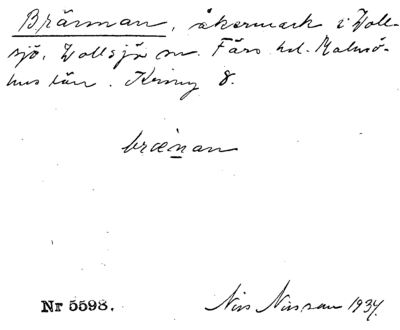 Brännan, åkermark i Voll-
sjö, Vollsjö sn. Färs hd. Malmö-
hus län. 8.
brænan
Nr 5598.
Nils Nilsson 1934.